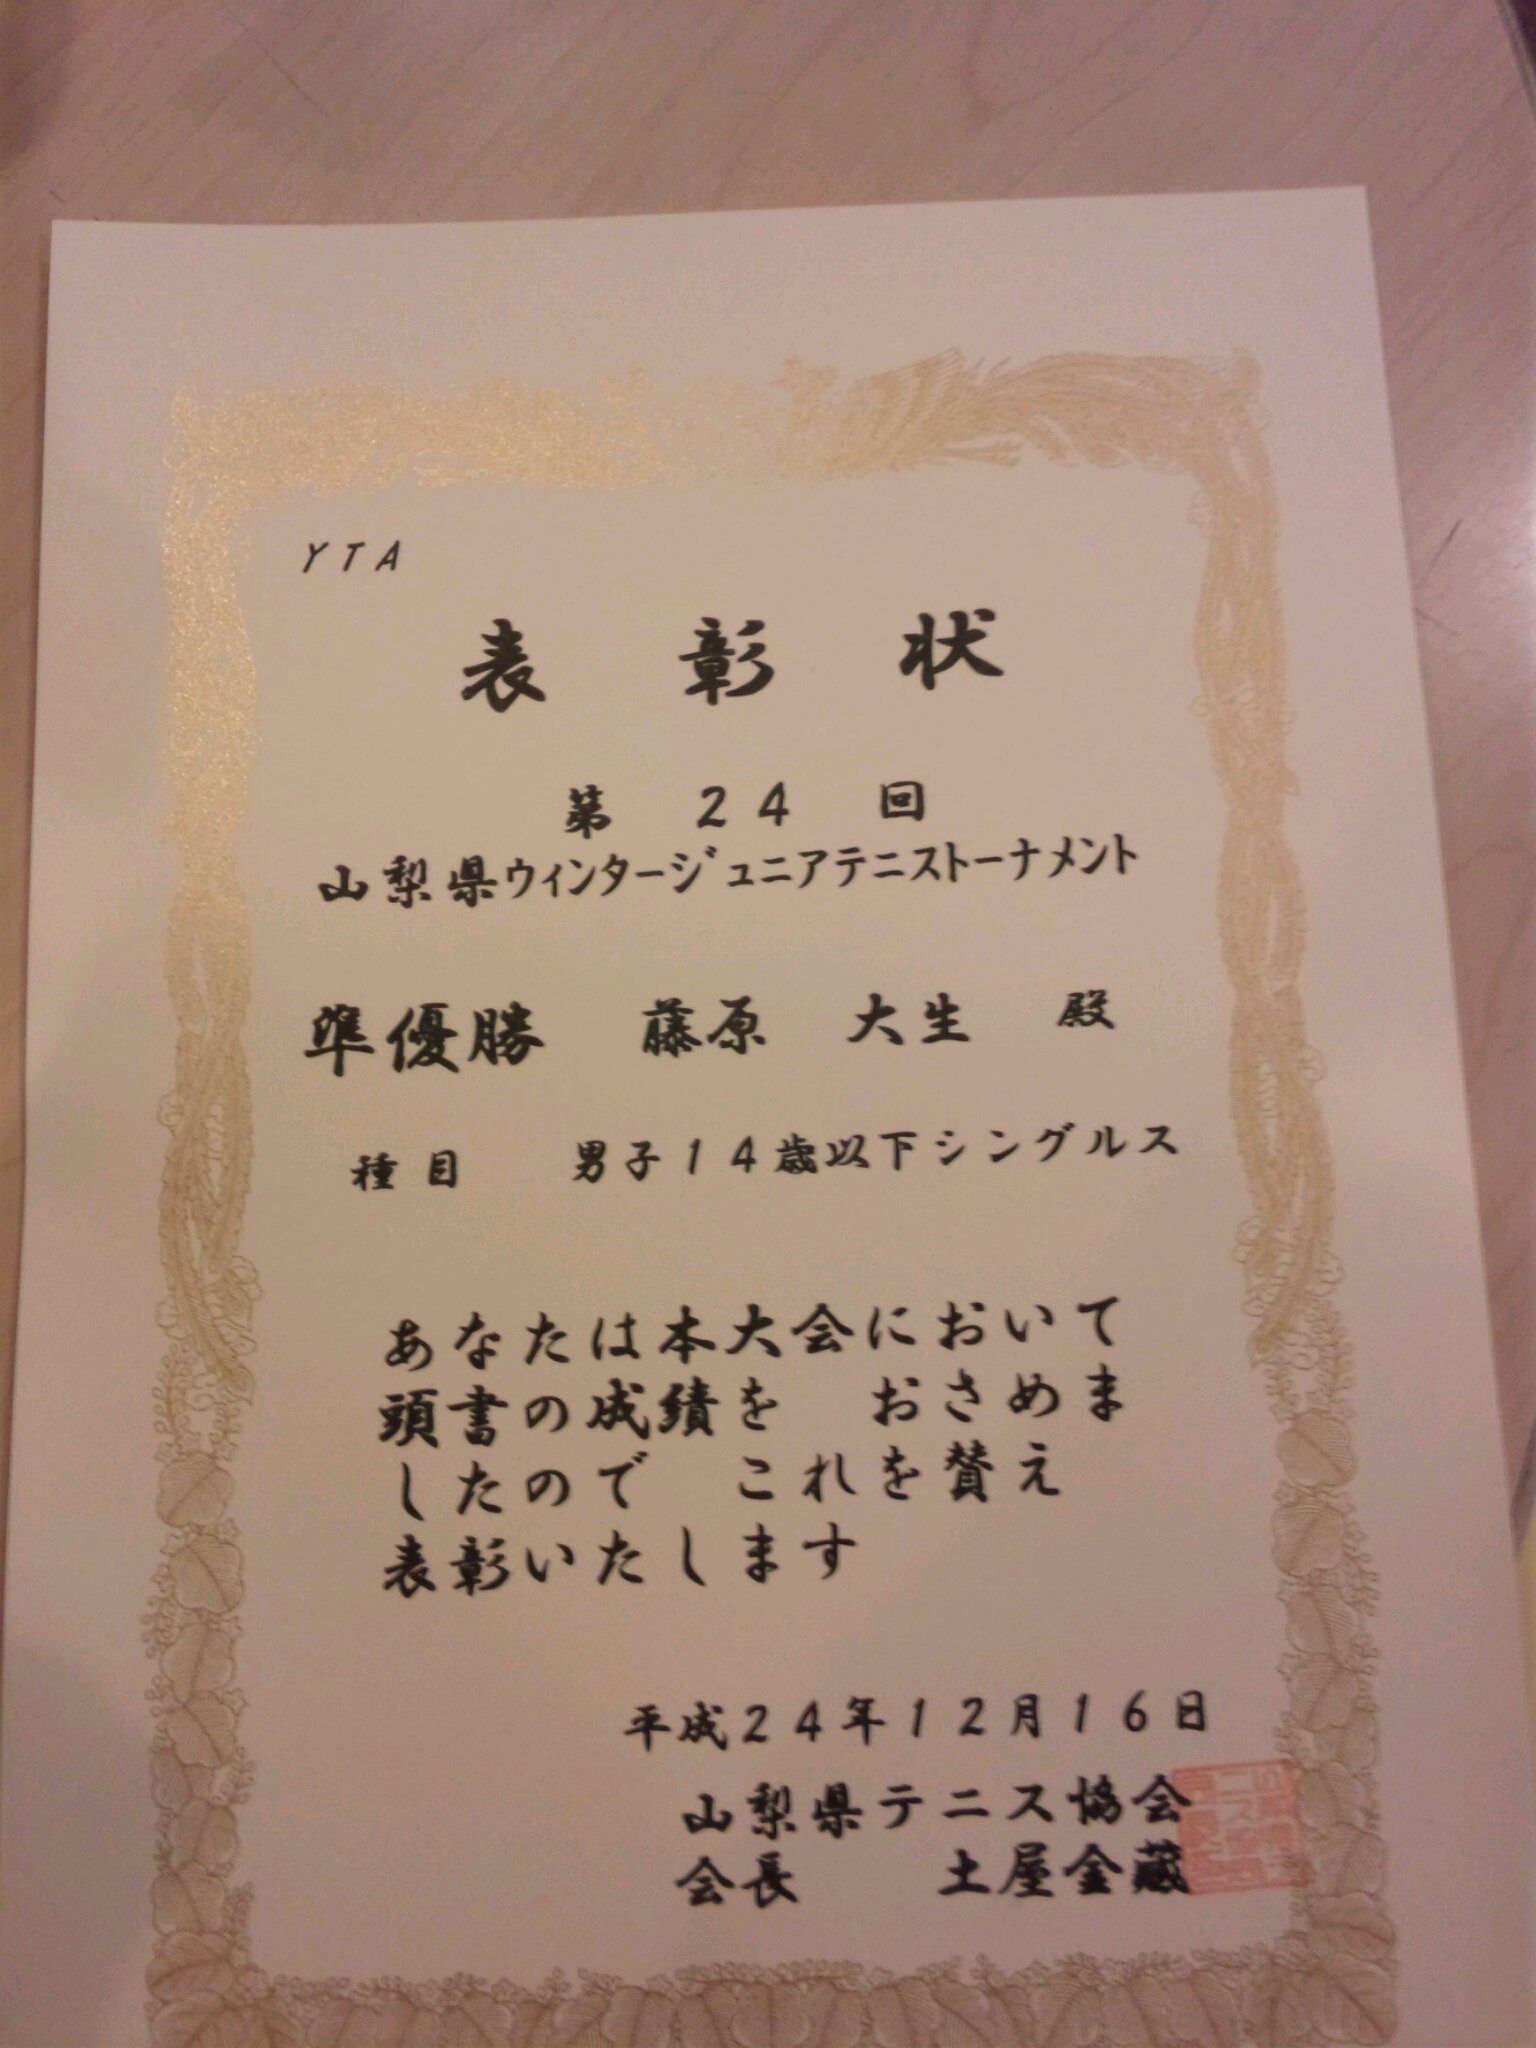 YTA
表彰状
第 24 回
山梨県ウィンタージュニアテニストーナメント
準優勝 藤原 大生 殿
種目 男子14歳以下シングルス
あなたは本大会において
頭書の成績を おさめま
したので これを賛え
表彰いたします
平成24年12月16日
山梨県テニス協会
会長 土屋金蔵